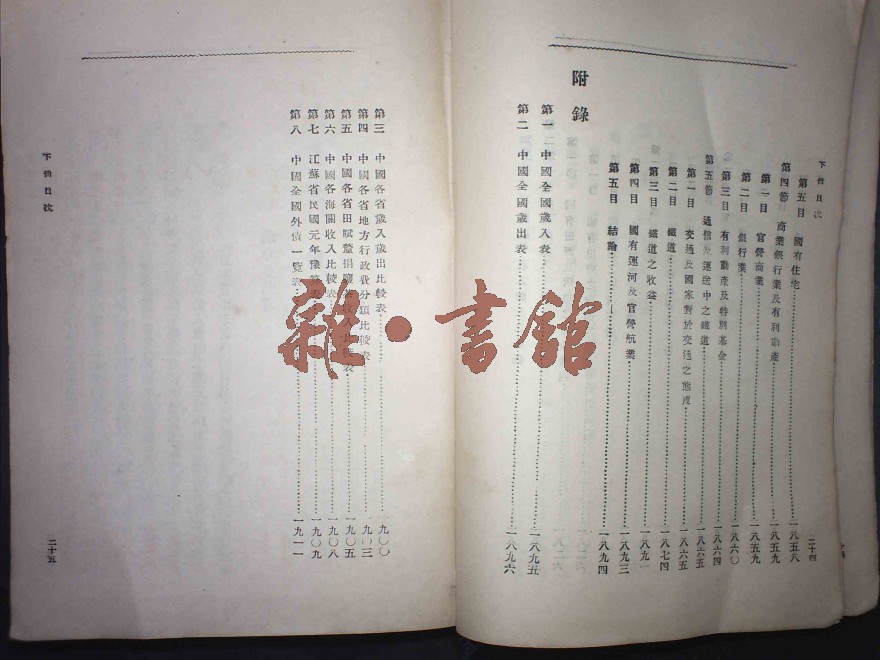 下冊目次
二十四
第五目 國有住宅 一八五八
第四節 商業銀行業及有利動產 一八五九
第一目 官營商業 一八五九
第二目 銀行業 一八六〇
第三目 有利動產及特別基金 一八六四
第五節 通信及運送中之鐵道 一八六五
第一目 交通及國家對於交通之態度 一八六五
第二目 鐵道 一八七四
第三目 鐵道之收益 一八九一
第四目 國有運河及官營航業 一八九三
第五目 結論 一八九四
附錄
第一 中國全國歲入表 一八九五
第二 中國全國歲出表 一八九六
第三 中國各省歲入歲出比較表 一九〇〇
第四 中國各省地方行政費分類比較表 一九〇三
第五 中國各省田賦釐捐 收入比較表 一九〇五
第六 中國各海關收入比較表 一九〇八
第七 江蘇省民國元年豫算表 一九〇九
第八 中國全國外債一覽表 一九一一
下冊目次
二十五
雜·書館